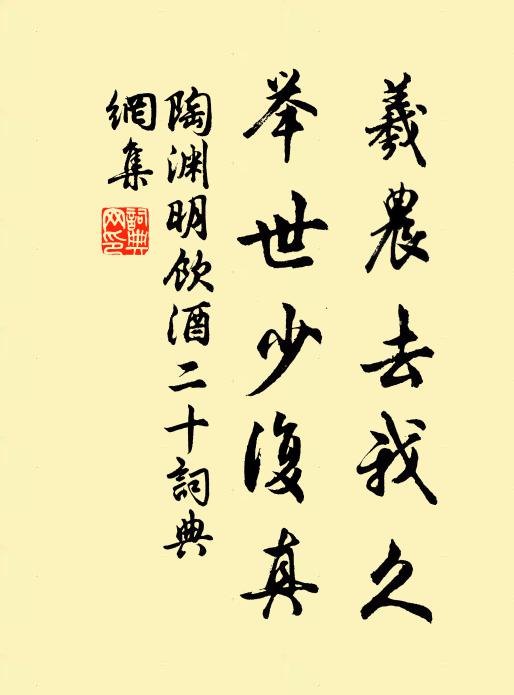 羲農去我久
举世少復真
陶渊明飲酒二十詞典
網集
詞典
网印